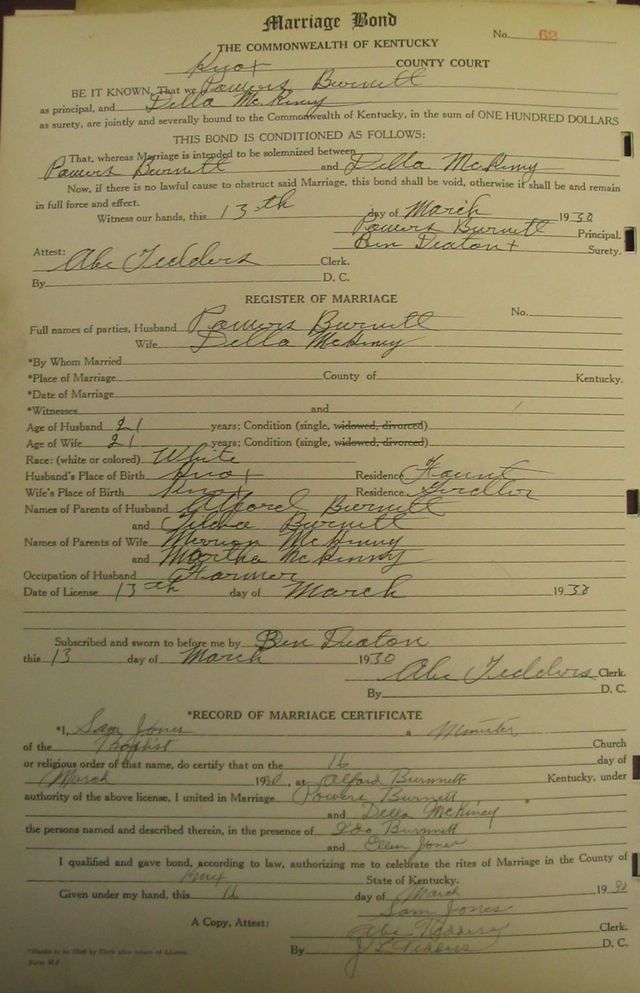 Marriage Bond
No. 62
THE COMMONWEALTH OF KENTUCKY
Knox COUNTY COURT
BE IT KNOWN, That we Powers Burnett
as principal, and Della McKinny
as surety, are jointly and severally bound to the Commonwealth of Kentucky, in the sum of ONE HUNDRED DOLLARS
THIS BOND IS CONDITIONED AS FOLLOWS:
That, whereas Marriage is intended to be solemnized between
Powers Burnett and Della McKinny
Now, if there is no lawful cause to obstruct said Marriage, this bond shall be void, otherwise it shall be and remain
in full force and effect.
Witness our hands, this 13th day of March 1930
Powers Burnett Principal.
Ben Deaton + Surety.
Attest:
Abe Tedders Clerk.
By D. C.
REGISTER OF MARRIAGE
No.
Full names of parties, Husband Powers Burnett
Wife Della McKinny
*By Whom Married
*Place of Marriage County of Kentucky.
*Date of Marriage
*Witnesses and
Age of Husband 21 years; Condition (single, widowed, divorced)
Age of Wife 21 years; Condition (single, widowed, divorced)
Race: (white or colored) White
Husband's Place of Birth Knox Residence
Wife's Place of Birth Knox Residence
Names of Parents of Husband Alford Burnett
and Burnett
Names of Parents of Wife McKinny
and Martha McKinny
Occupation of Husband Farmer
Date of License 13th day of March 1930
Subscribed and sworn to before me by Ben Deaton
this 13 day of March 1930
Abe Tedders Clerk.
By D. C.
*RECORD OF MARRIAGE CERTIFICATE
*I, Sam Jones a Minister
of the Baptist Church
or religious order of that name, do certify that on the 16 day of
March 1930, at Alford Burnnett Kentucky, under
authority of the above license, I united in Marriage Powers Burnett
and Della McKiney
the persons named and described therein, in the presence of Ido Burnnett
and Ellen Jones
I qualified and gave bond, according to law, authorizing me to celebrate the rites of Marriage in the County of
Knox State of Kentucky.
Given under my hand, this 16 day of March 1930
Sam Jones
A Copy, Attest: Abe Tedders Clerk.
By D. C.
*Blanks to be filled by Clerk after return of License.